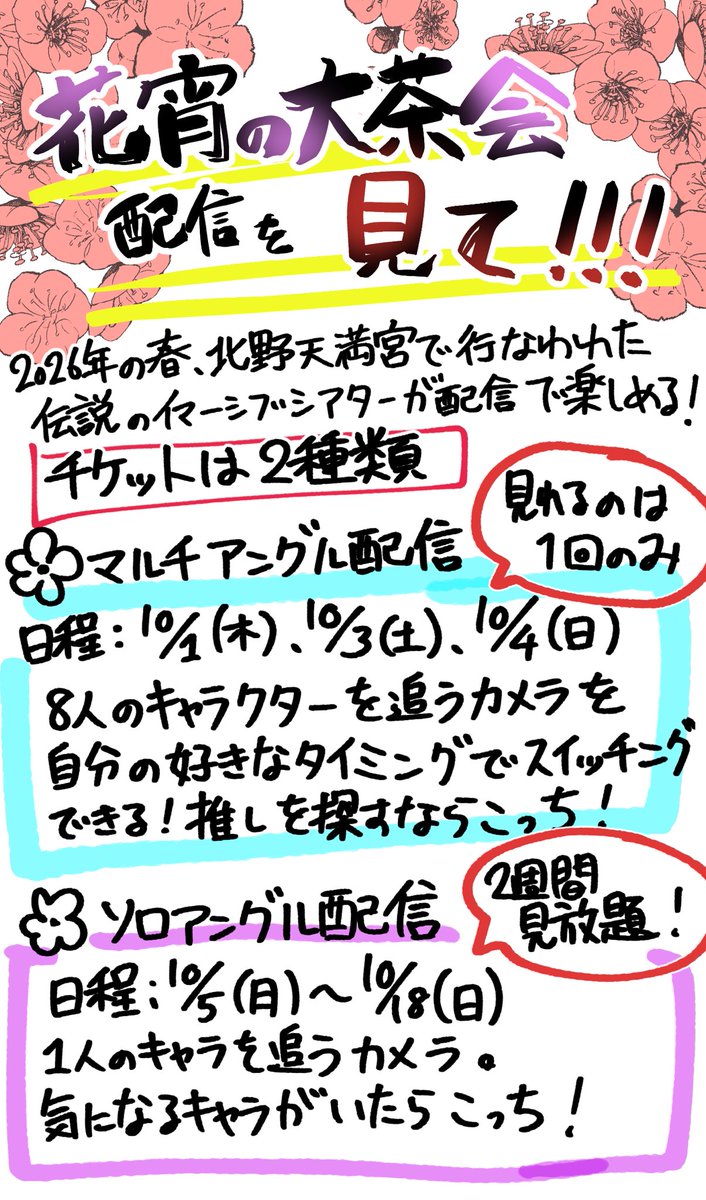 花宵の大茶会
配信を 見て!!!
2026年の春、北野天満宮で行なわれた
伝説のイマーシブシアターが配信で楽しめる!
チケットは2種類
マルチアングル配信
見れるのは
1回のみ
日程:10/1(木)、10/3(土)、10/4(日)
8人のキャラクターを追うカメラを
自分の好きなタイミングでスイッチング
できる!推しを探すならこっち!
ソロアングル配信
2週間
見放題!
日程:10/5(月)〜10/18(日)
1人のキャラを追うカメラ。
気になるキャラがいたらこっち!